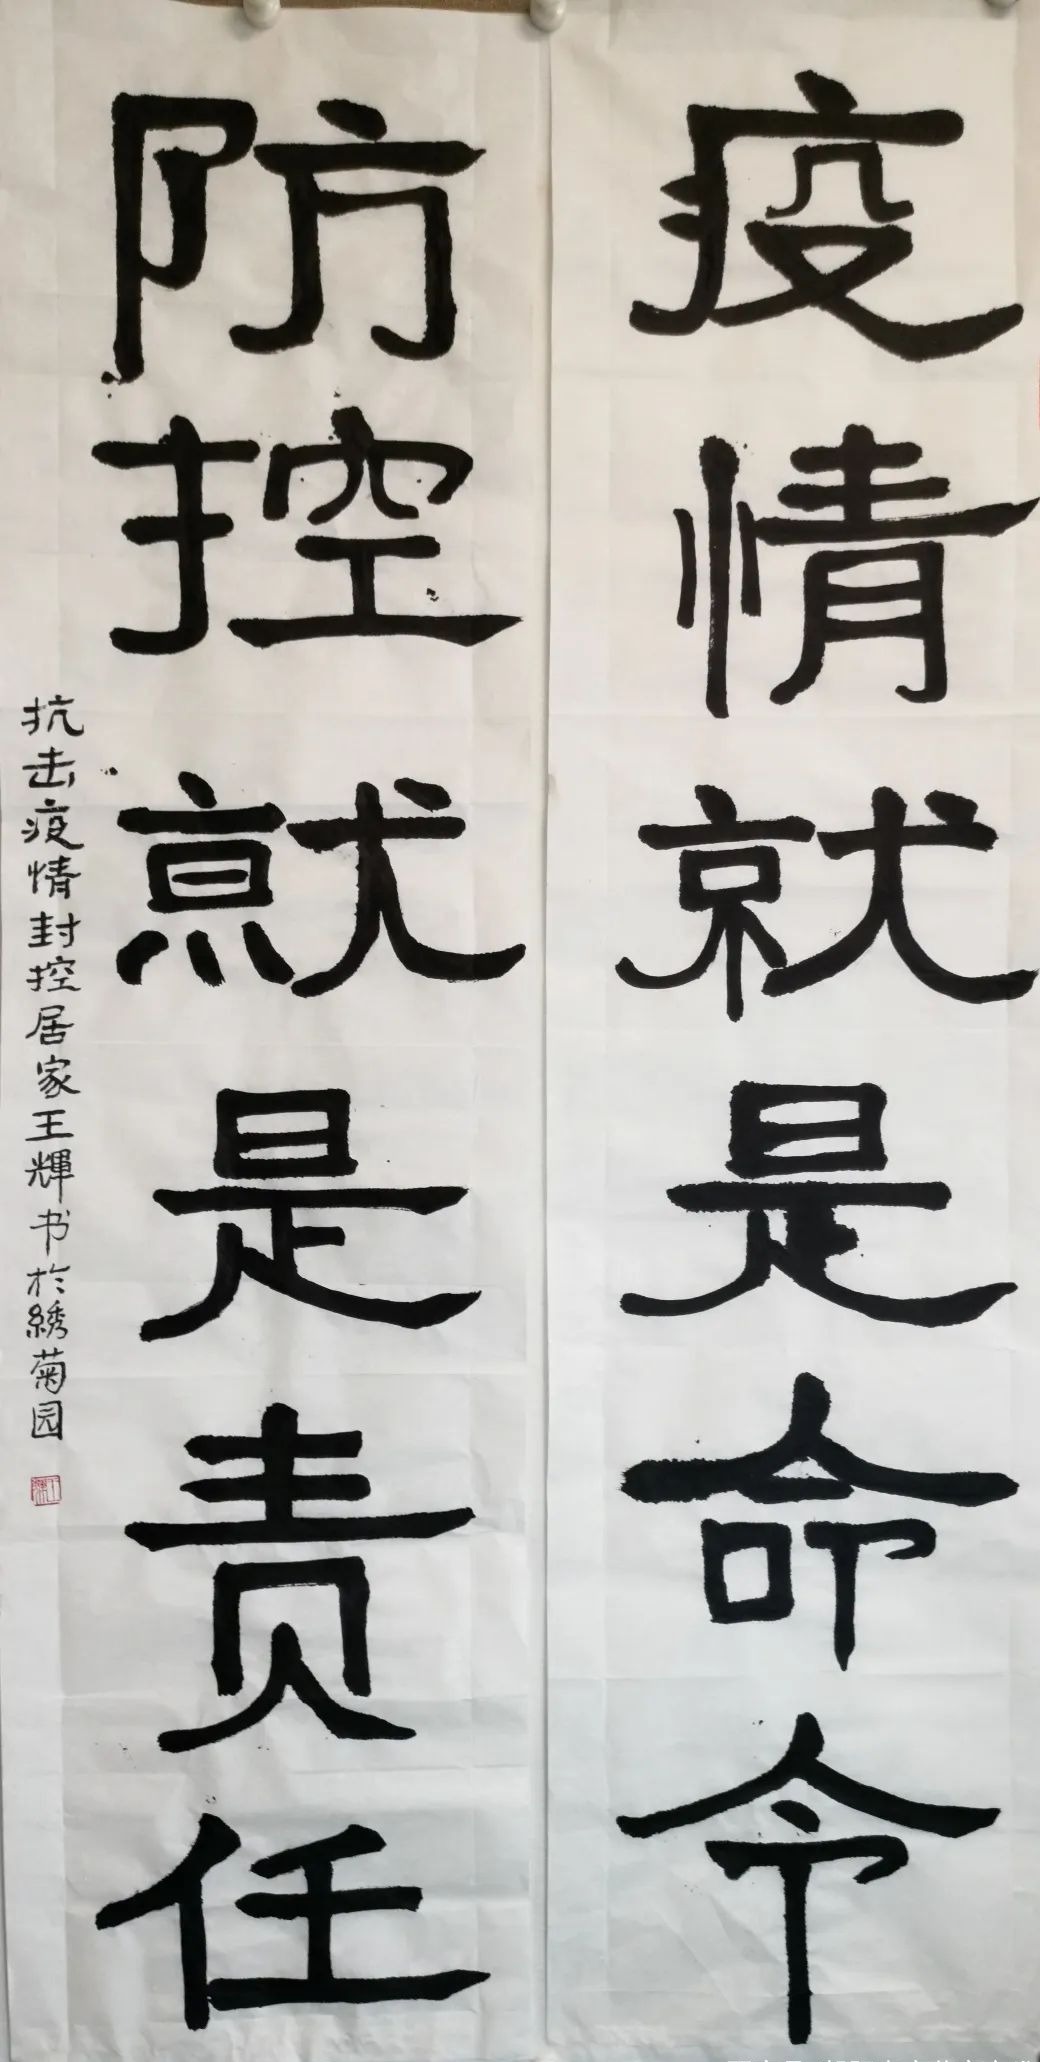 疫情就是命令
防控就是责任
抗击疫情封控居家王輝书於綉菊园